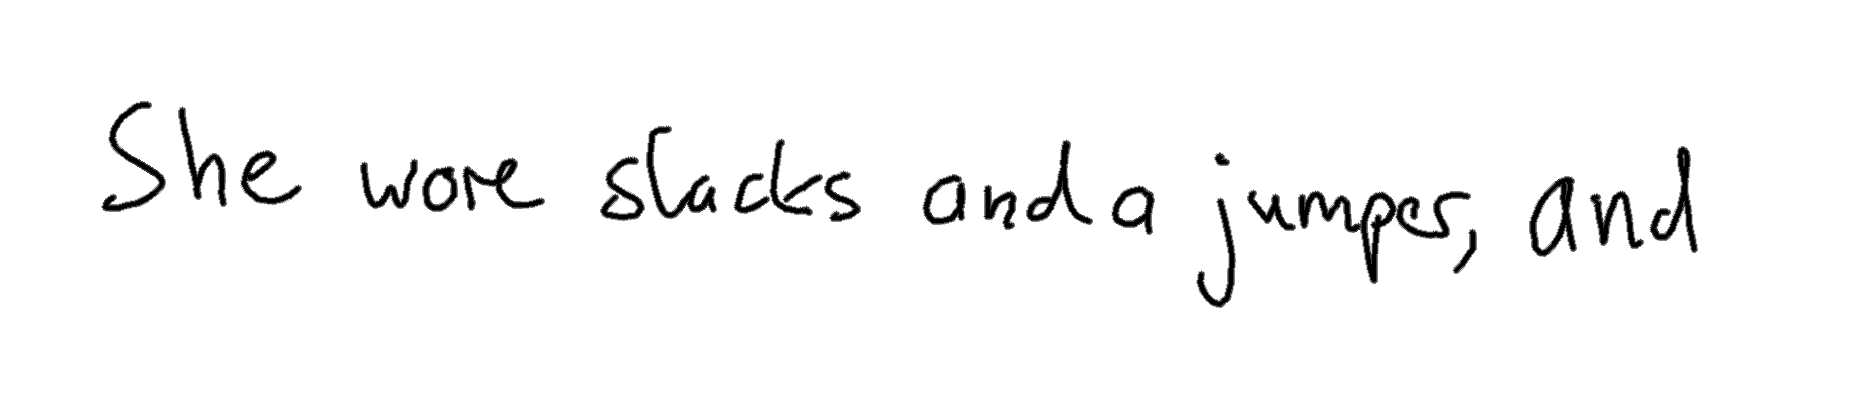 She wore slacks and a jumper, and